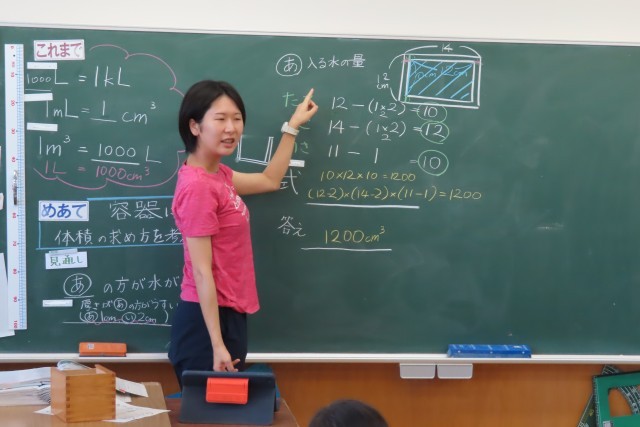 これまで
1000L = 1kL
1mL = 1 cm³
1m³ = 1000 L
1L = 1000cm³
めあて
容器に
体積の求め方を考
見通し
あ の方が水が
厚さが あ の方がうすい
あ 1cm い 2cm
あ 入る水の量
た 12 − (1×2) = 10
14 − (1×2) = 12
さ 11 − 1 = 10
式 10×12×10=1200
(12-2)×(14-2)×(11-1)=1200
答え 1200cm³
14
12